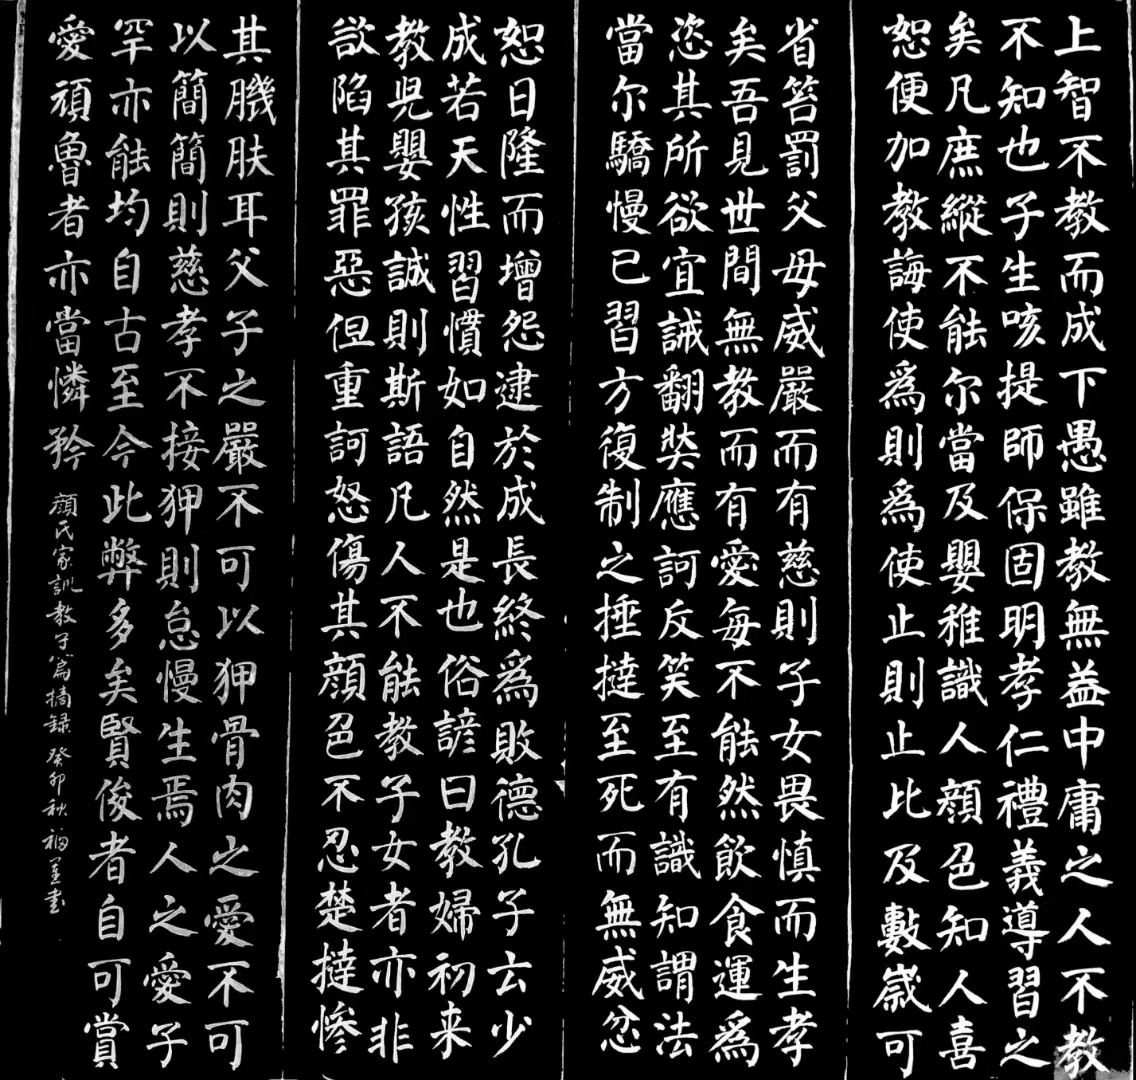 上智不教而成下愚雖教無益中庸之人不教
不知也子生咳提師保固明孝仁禮義導習之
矣凡庶縱不能尔當及嬰稚識人顏色知人喜
恕便加教誨使爲則爲使止則止比及數歲可
省笞罰父母威嚴而有慈則子女畏慎而生孝
矣吾見世間無教而有愛每不能然飲食運爲
恣其所欲宜誡翻奬應訶反笑至有識知謂法
當尔驕慢已習方復制之捶撻至死而無威忿
恕日隆而增怨逮於成長終爲敗德孔子云少
成若天性習慣如自然是也俗諺曰教婦初来
教児嬰孩誠則斯語凡人不能教子女者亦非
欲陷其罪惡但重訶怒傷其顏色不忍楚撻慘
其𦠄肤耳父子之嚴不可以狎骨肉之愛不可
以簡簡則慈孝不接狎則怠慢生焉人之愛子
罕亦能均自古至今此弊多矣賢俊者自可賞
愛頑魯者亦當憐矜
顏氏家訓教子篇摘録 癸卯秋 福書